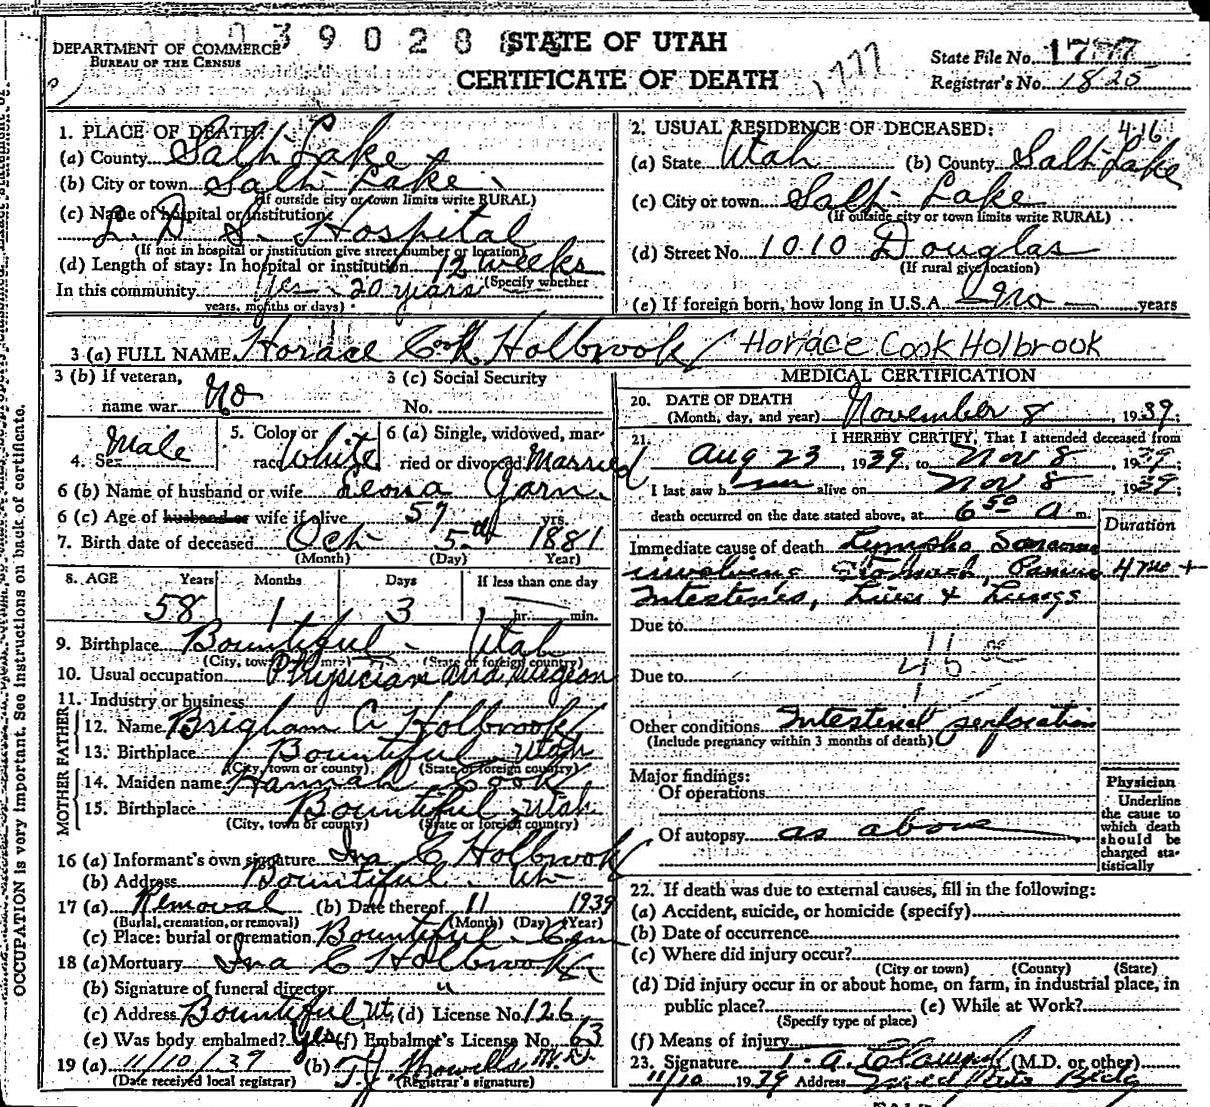 039028
STATE OF UTAH
CERTIFICATE OF DEATH
DEPARTMENT OF COMMERCE
BUREAU OF THE CENSUS
1777
State File No. 1777
Registrar's No. 1825
1. PLACE OF DEATH:
(a) County Salt Lake
(b) City or town Salt Lake
(If outside city or town limits write RURAL)
(c) Name of hospital or institution:
L. D. S. Hospital
(If not in hospital or institution give street number or location)
(d) Length of stay: In hospital or institution 12 weeks
(Specify whether
In this community yes - 20 years
years, months or days)
2. USUAL RESIDENCE OF DECEASED: 416
(a) State Utah (b) County Salt Lake
(c) City or town Salt Lake
(If outside city or town limits write RURAL)
(d) Street No. 1010 Douglas
(If rural give location)
(e) If foreign born, how long in U.S.A. No years
3 (a) FULL NAME Horace Cook Holbrook Horace Cook Holbrook
3 (b) If veteran, name war No
3 (c) Social Security No.
4. Sex Male
5. Color or race White
6 (a) Single, widowed, married or divorced Married
6 (b) Name of husband or wife Leona Garn
6 (c) Age of husband or wife if alive 57 yrs.
7. Birth date of deceased Oct 5th 1881
(Month) (Day) Year)
8. AGE Years Months Days If less than one day
58 1 3 hr. min.
9. Birthplace Bountiful - Utah
(City, town (State or foreign country)
10. Usual occupation Physician and Surgeon
11. Industry or business
FATHER
12. Name Brigham A Holbrook
13. Birthplace Bountiful Utah
(City, town or county) (State or foreign country)
MOTHER
14. Maiden name Hannah Cook
15. Birthplace Bountiful Utah
(City, town or county) (State or foreign country)
16 (a) Informant's own signature Ina C Holbrook
(b) Address Bountiful - Ut
17 (a) Removal (b) Date thereof 11 1939
(Burial, cremation, or removal) (Month) (Day) (Year)
(c) Place: burial or cremation Bountiful - Cem
18 (a) Mortuary Ina C Holbrook
(b) Signature of funeral director "
(c) Address Bountiful, Ut. (d) License No. 126
(e) Was body embalmed? Yes (f) Embalmer's License No. 63
19 (a) 11/10/39 (b) T. J. Howells M.D.
(Date received local registrar) (Registrar's signature)
MEDICAL CERTIFICATION
20. DATE OF DEATH
(Month, day, and year) November 8, 1939;
21. I HEREBY CERTIFY, That I attended deceased from
Aug 23, 1939, to Nov 8, 1939;
I last saw him alive on Nov 8, 1939;
death occurred on the date stated above, at 6 50 a m.
Duration
Immediate cause of death Lympho Sarcoma
involving Stomach,
4 mo +
Intestines, Liver & Lungs
Due to
Due to
Other conditions Intestinal perforation
(Include pregnancy within 3 months of death)
Major findings:
Of operations
Of autopsy as above
Physician
Underline
the cause to
which death
should be
charged sta-
tistically
22. If death was due to external causes, fill in the following:
(a) Accident, suicide, or homicide (specify)
(b) Date of occurrence
(c) Where did injury occur?
(City or town) (County) (State)
(d) Did injury occur in or about home, on farm, in industrial place, in
public place? (e) While at Work?
(Specify type of place)
(f) Means of injury
23. Signature T. A. Clawson (M.D. or other)
11/10 1939 Address Bldg
OCCUPATION is very important. See instructions on back of certificate.